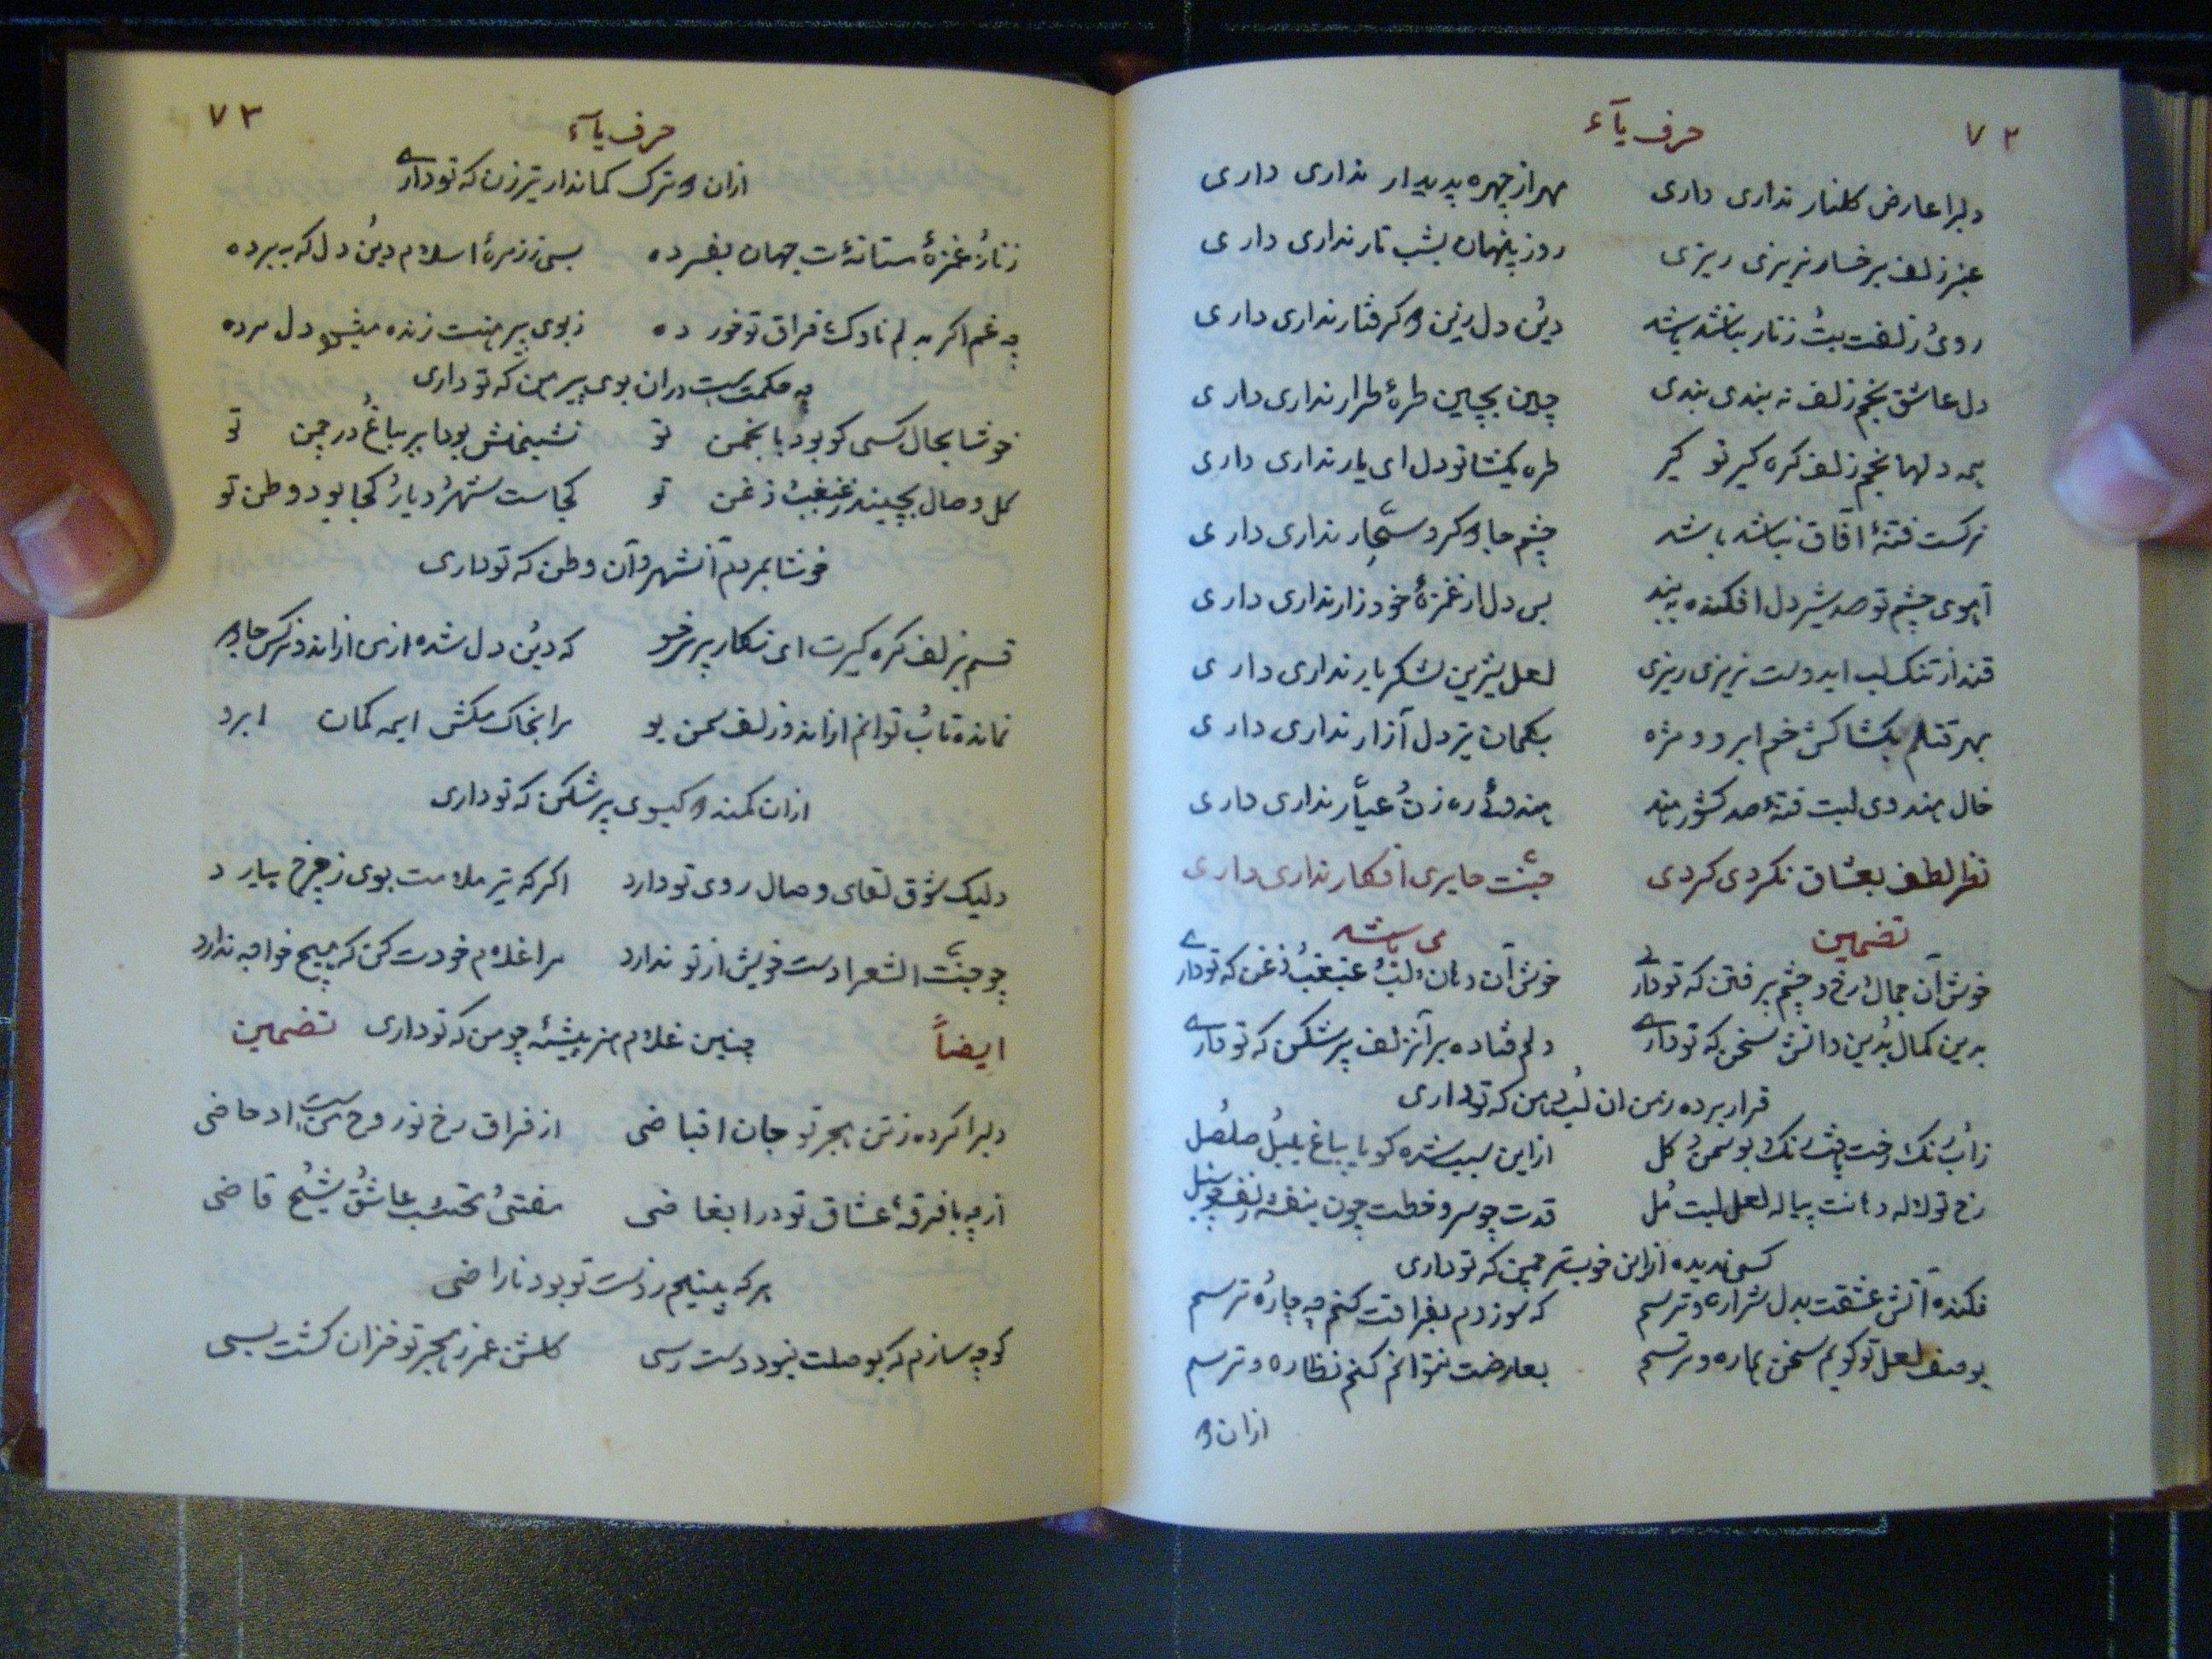 ۷۲
حرف یآء
دلبرا عارض گلنار نداری داری مهر از چهره پدیدار نداری داری
عنبر زلف برخسار نریزی ریزی روز پنهان بشب تار نداری داری
روی زلفت بت زنار نباشد باشد دین دل رنین و گرفتار نداری داری
دل عاشق بخم زلف نه بندی بندی چین بچین طرهٔ طرار نداری داری
همه دلها بخم زلف گره گیر تو گیر طره بگشا تو دل ای یار نداری داری
نرگست فتنهٔ آفاق نباشد باشد چشم جادوگر و سحار نداری داری
آهوی چشم تو صد شیر دل افکنده به بند بس دل از غمزهٔ خود زار نداری داری
قند از تنک لب ایدوست نریزی ریزی لعل شیرین شکر بار نداری داری
بهر قتلم بکشاکش خم ابرو و مژه بکمان تیر دل آزار نداری داری
خال هندوی لبت فتنهٔ صد کشور هند هندوی ره زن عیار نداری داری
نظر لطف بعشاق نکردی کردی جنت حایری افکار نداری داری
تضمین می باشد
خوش آن جمال رخ و چشم پر فتن که تو داری خوش آن دهان و لب و غبغب ذغن که تو داری
بدین کمال بدین دانش سخن که تو داری دلم فتاده بر آنزلف پر شکن که تو داری
قرار برده زمن ان لب و دهن که تو داری
ز آب رنک رخت یافت رنک بو سمن گل از این سبب شده گویا بباغ بلبل صلصل
رخ تو لاله دهانت پیاله لعل لبت مل قدت چو سرو خطت چون بنفشه زلف چو سنبل
کسی ندیده از این خوبتر چمن که تو داری
فکنده آتش عشقت بدل شراره و ترسم که سوزدم بفراقت کنم چه چاره ترسم
بوصف لعل تو گویم سخن هماره و ترسم بعارضت نتوانم کنم نظاره و ترسم
ازان دو
۷۳
حرف یآء
ازان دو ترک کماندار تیرزن که تو داری
ز ناز غمزهٔ مستانه‌ات جهان بفسرده بسی ز زمرهٔ اسلام دین دل که به برده
چه غم اگر به دلم ناوک فراق تو خورده ز بوی پیرهنت زنده میشود دل مرده
چه حکمت است دران بوی پیرهن که تو داری
خوشا بحال کسی کو بود با نجمن تو نشیمنش بود اندر بباغ در چمن تو
گل وصال بچیند ز غبغب ذغن تو کجاست شهر و دیار کجا بود وطن تو
خوشا بمردم آنشهر و آن وطن که تو داری
قسم بزلف گره گیرت ای نگار پریرخو که دین دل شده از من ازاندو نرگس جادو
نمانده تاب توانم ازاندو زلف سمن بو مرا بخاک مکش ایمه کمان ابرو
ازان کمند و گیسوی پر شکن که تو داری
ولیک شوق لقای وصال روی تو دارد اگر که تیر ملامت بوی ز چرخ ببارد
چو جنت الشعرا دست خویش از تو ندارد مرا غلام خودت کن که هیچ خواجه ندارد
ایضاً چنین غلام هنر پیشهٔ چو من که تو داری تضمین
دلبرا کرده ز تن هجر تو جان اقباضی از فراق رخ تو روح من است ادحاضی
از چه با فرقهٔ عشاق تو در ابغاضی مفتی محتسب عاشق شیخ قاضی
هرکه بینیم ز دست تو بود ناراضی
گو چه سازم که بوصلت نبود دست رسی گلشن عمر ز هجر تو خزان گشت بسی